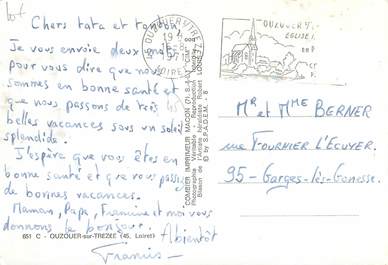 Chers tata et tonton
Je vous envoie deux mots
pour vous dire que nous
sommes en bonne santé et
que nous passons de très
belles vacances sous un soleil
splendide.
J'espère que vous êtes en
bonne santé et que vous passez
de bonnes vacances.
Maman, Papa, Francine et moi vous
donnons le bonjour.
A bientôt
Francis
651 C - OUZOUER-sur-TREZEE (45. Loiret)
COMBIER IMPRIMEUR MACON
Robert LOUIS
© by S.P.A.D.E.M.
OUZOUER
EGLISE
Mr et Mme BERNER
rue FOURNIER L'ECUYER.
95-Garges-lès-Gonesse.